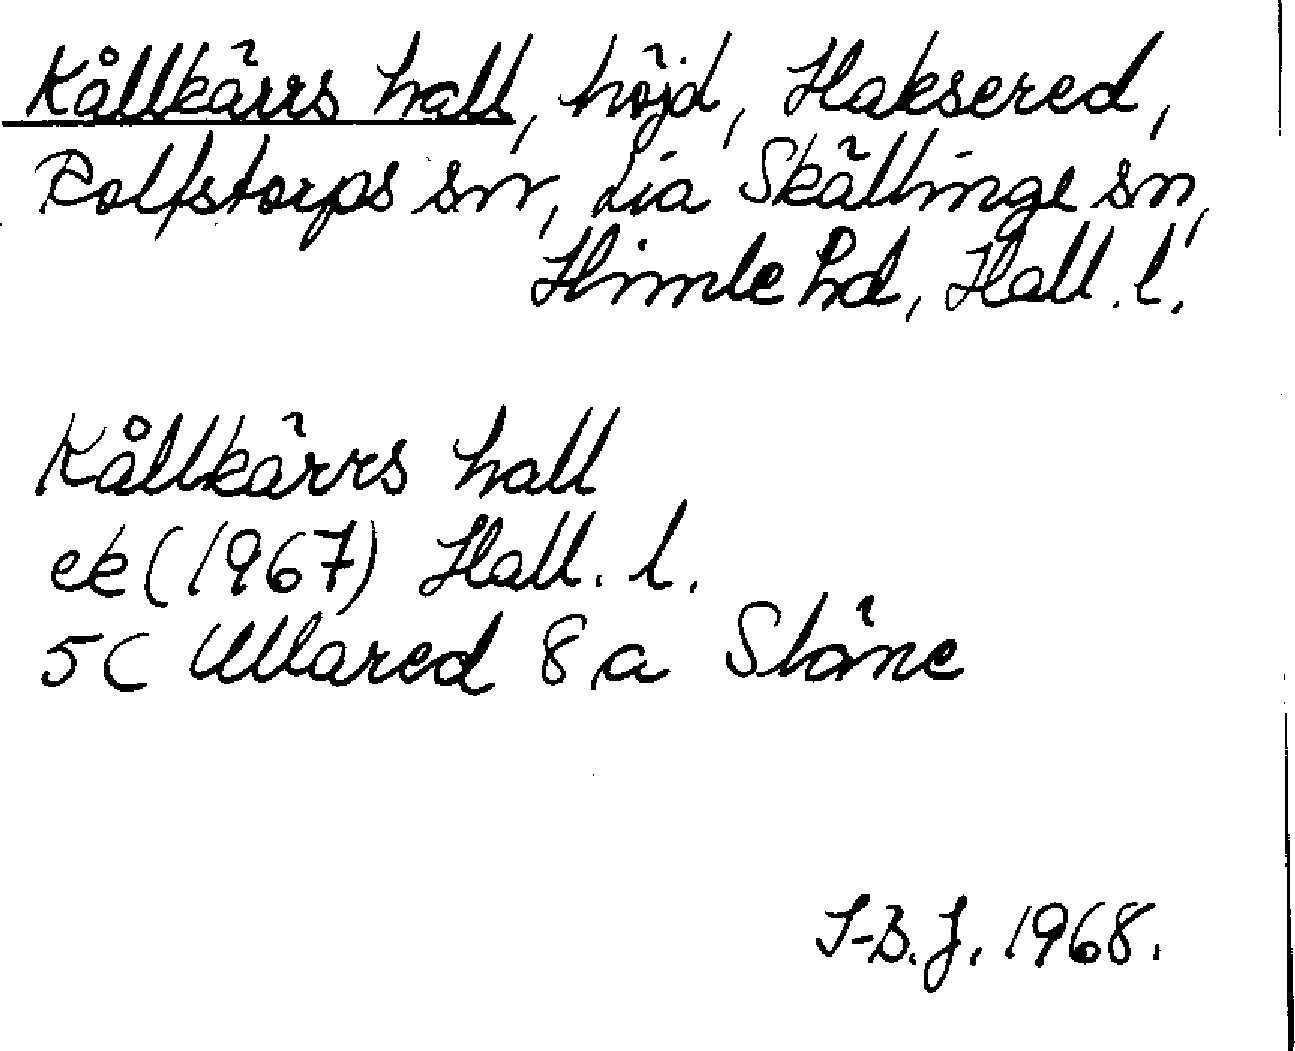 Kållkärrs hall, höjd, Haksered,
Rolfstorps sn, Lia Skällinge sn,
Himle hd, Hall. l.
Kållkärrs hall
ek (1967) Hall. l.
5C Ullared 8 a Stäne
I-B. J. 1968.